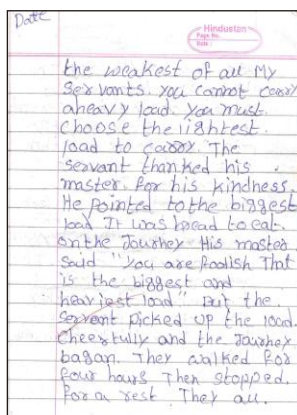 Date
Hindustan
Page No.
Date :
the weakest of all My
Servants. you cannot carry
aheavy load. you must.
choose the lightest.
load to carry. The
servant thanked his
master. for his kindness.
He pointed to the biggest
load It was bread to eat.
onthe Journey His master
said "you are foolish That
is the biggest and
heaviest load" But the
Servant picked up the load.
Cheerfully and the Journey
bagan. They walked for
four hours Then stopped.
for a rest. They all.